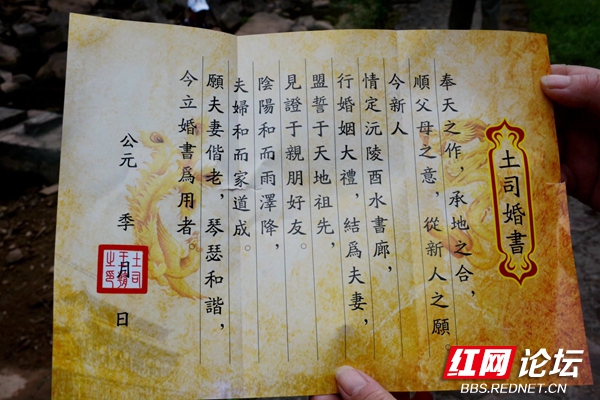 土司婚書
奉天之作，承地之合，
順父母之意，從新人之願
今新人
情定沅陵酉水書廊，
行婚姻大禮，結爲夫妻，
盟誓于天地祖先，
見證于親朋好友。
陰陽和而雨澤降，
夫婦和而家道成。
願夫妻偕老，琴瑟和諧，
今立婚書爲用者。
公元 季 月 日
红网 论坛
BBS.REDNET.CN